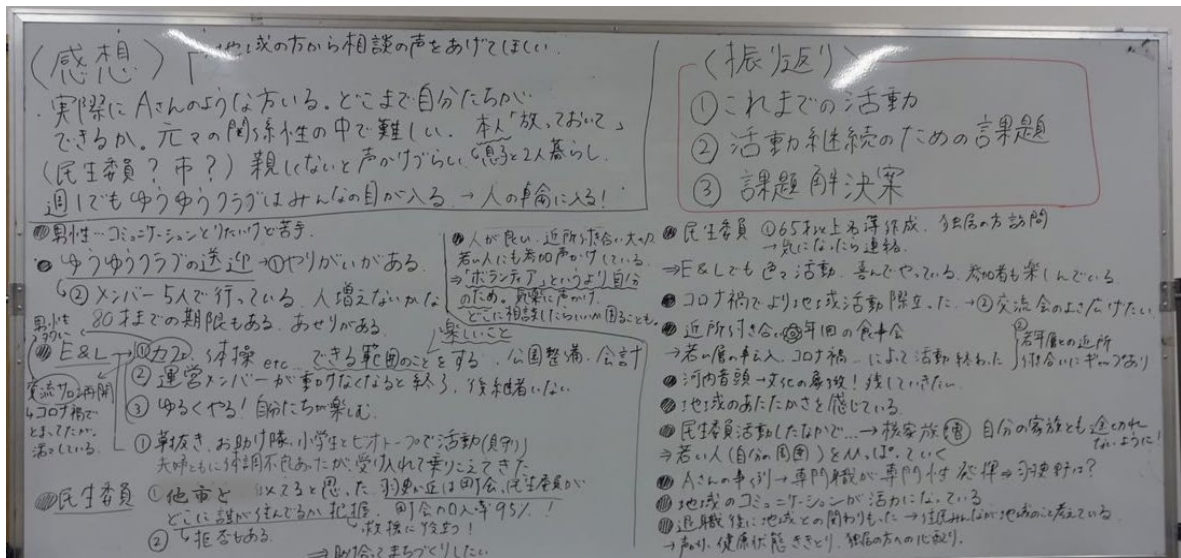 (感想)
地域の方から相談の声をあげてほしい.
・実際にAさんのような方いる。どこまで自分たちが
できるか。元々の関係性の中で難しい. 本人「放っておいて」
(民生委員?市?)親しくないと声かけづらい 息子と2人暮らし.
週1でもゆうゆうクラブはみんなの目が入る → 人の輪に入る!
●男性…コミュニケーションとりたいけど苦手
● ゆうゆうクラブの送迎→①やりがいがある.
②メンバー5人で行っている. 人増えないかな
80才までの期限もある. あせりがある.
●人が良い. 近所付き合い大切
若い人にも参加声かけしている.
⇒「ボランティア」というより自分
のため. 気楽に声かけ.
どこに相談したらいいか困ることも.
楽しいこと
● E&L→①カフェ, 体操 etc… できる範囲のことをする. 公園整備, 会計
②運営メンバーが動けなくなると終了, 後継者いない
③ゆるくやる! 自分たちが楽しむ.
交流サロン再開
コロナ禍で
とまってたが,
活動している.
①草抜き, お助け隊, 小学生とビオトープで活動(見守り)
夫婦ともに体調不良あったが, 受け入れて乗りこえてきた
●民生委員 ①他市と
と思った. 羽曳が丘は町会, 民生委員が
どこに誰が住んでるか把握. 町会の加入率95%!
②拒否もある. 救援に役立つ!
⇒助け合ってまちづくりしたい
(振り返り)
①これまでの活動
②活動継続のための課題
③課題解決案
●民生委員 ①65才以上名簿作成. 独居の方訪問
→気になったら連絡.
⇒E&Lでも色々活動. 喜んでやっている. 参加者も楽しんでいる.
● コロナ禍でより地域活動際立った. →②交流会のよさ広げたい
● 近所付き合い 年1回の食事会
→若い層の転入, コロナ禍…によって活動終わった
②若年層との近所
付き合いにギャップあり
● 河内音頭→文化の 残していきたい.
● 地域のあたたかさを感じている.
● 民生委員活動したなかで…→核家族増 自分の家族とも途切れ
ないように!
⇒若い人(自分の周囲)をひっぱっていく
● Aさんの事例→専門職が専門性発揮⇒羽曳野は?
● 地域のコミュニケーションが活力になっている
● 退職後に地域との関わりもった →住民みんなが地域のこと考えている
→声かけ, 健康状態ききとり, 独居の方への心配り.